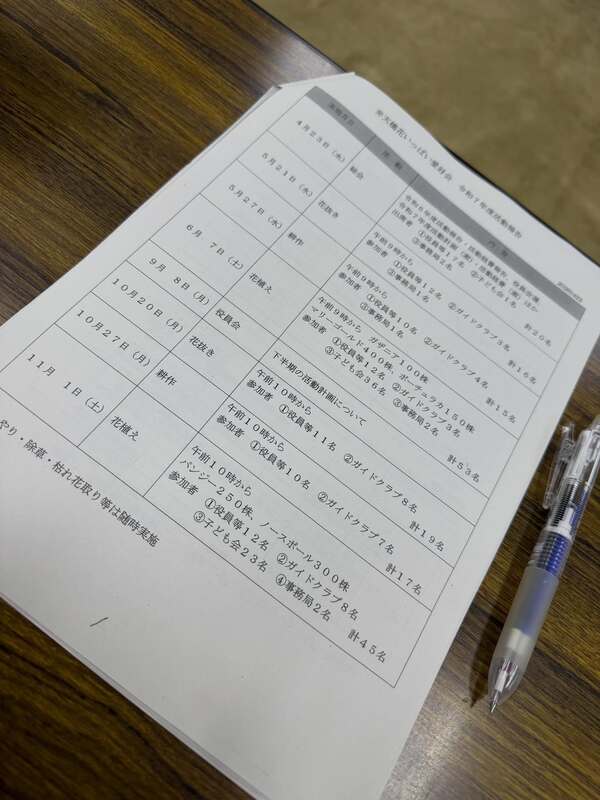 米大橋花いっぱい愛好会　令和７年度活動報告
実施月日　活動　内容
４月２３日（水）　総会
令和６年度活動報告・活動経費報告、役員改選、
令和７年度活動計画（案）・活動経費（案）ほか
出席者　①役員等１７名　②子ども会１名
③事務局２名　計２０名
５月２１日（水）　花抜き
午前９時から
参加者　①役員等１２名　②ガイドクラブ３名
③事務局１名　計１６名
５月２７日（水）　耕作
午前９時から
参加者　①役員等１０名　②ガイドクラブ４名
③事務局１名　計１５名
６月　７日（土）　花植え
午前９時から　ガザニア１００株
マリーゴールド４００株、ポーチュラカ１５０株
参加者　①役員等１２名　②ガイドクラブ３名
③子ども会３６名　③事務局２名　計５３名
９月　８日（月）　役員会
下半期の活動計画について
１０月２０日（月）　花抜き
午前１０時から
参加者　①役員等１１名　②ガイドクラブ８名
計１９名
１０月２７日（月）　耕作
午前１０時から
参加者　①役員等１０名　②ガイドクラブ７名
計１７名
１１月　１日（土）　花植え
午前１０時から
パンジー２５０株、ノースポール３００株
参加者　①役員等１２名　②ガイドクラブ８名
③子ども会２３名　④事務局２名　計４５名
やり・除草・枯れ花取り等は随時実施